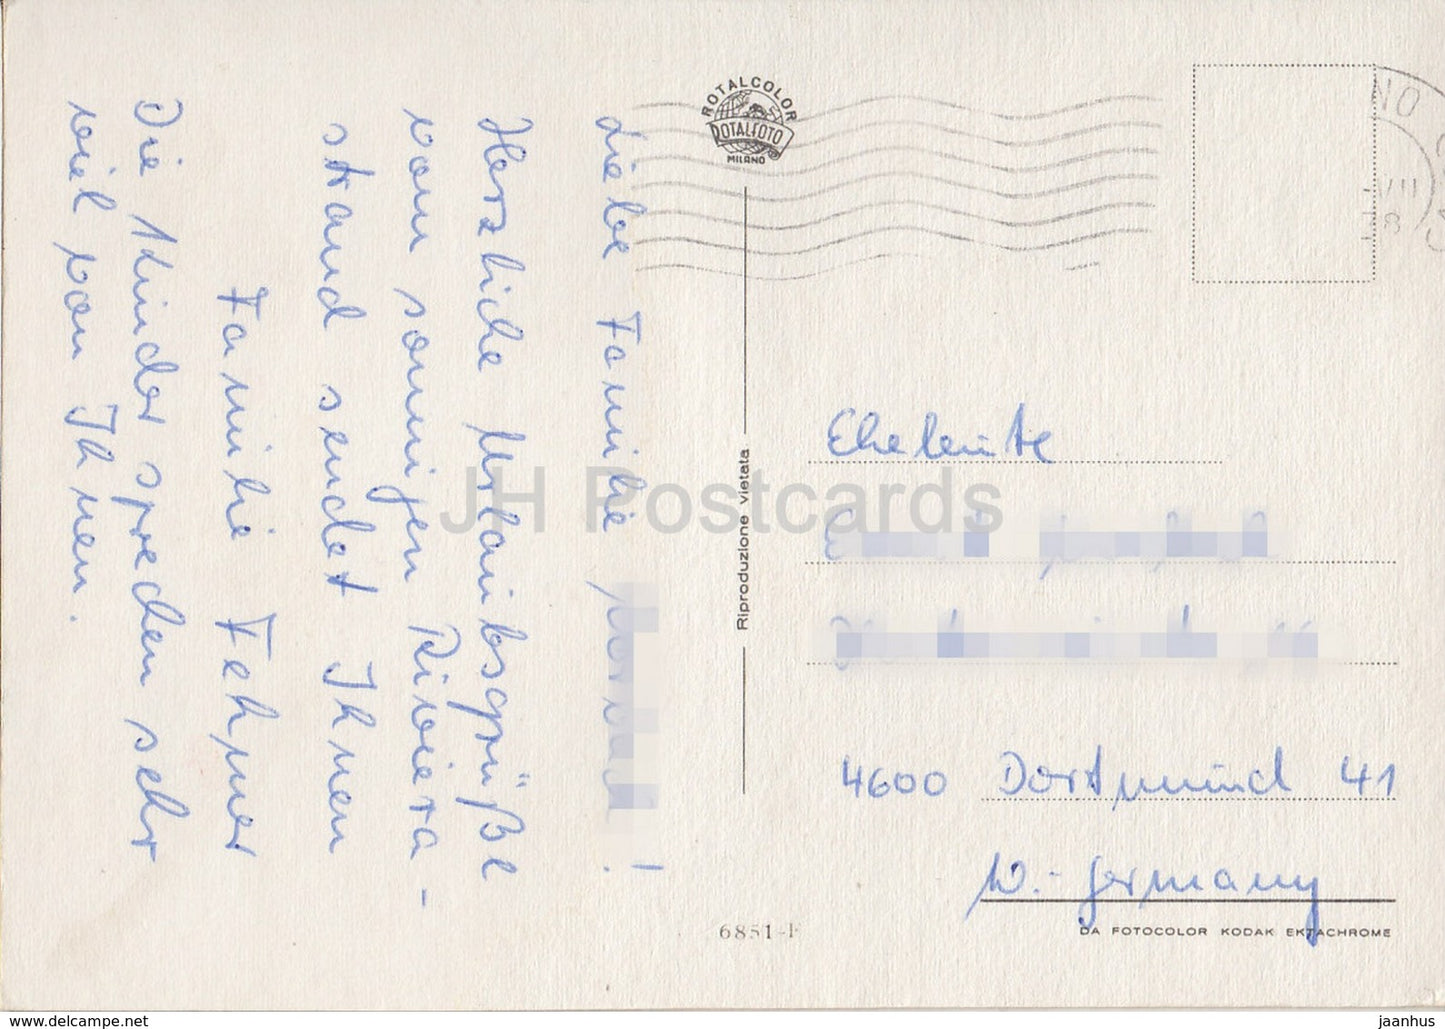 Liebe Familie
Herzliche Urlaubsgrüße
vom sonnigen Riviera-
strand sendet Ihnen
Familie Fehmer
Die Kinder sprechen sehr
viel von Ihnen.
ROTALCOLOR
ROTALFOTO
MILANO
Riproduzione vietata
6851-F
NO
VII
Eheleute
4600 Dortmund 41
W.-Germany
DA FOTOCOLOR KODAK EKTACHROME
JH Postcards
www.delcampe.net
jaanhus